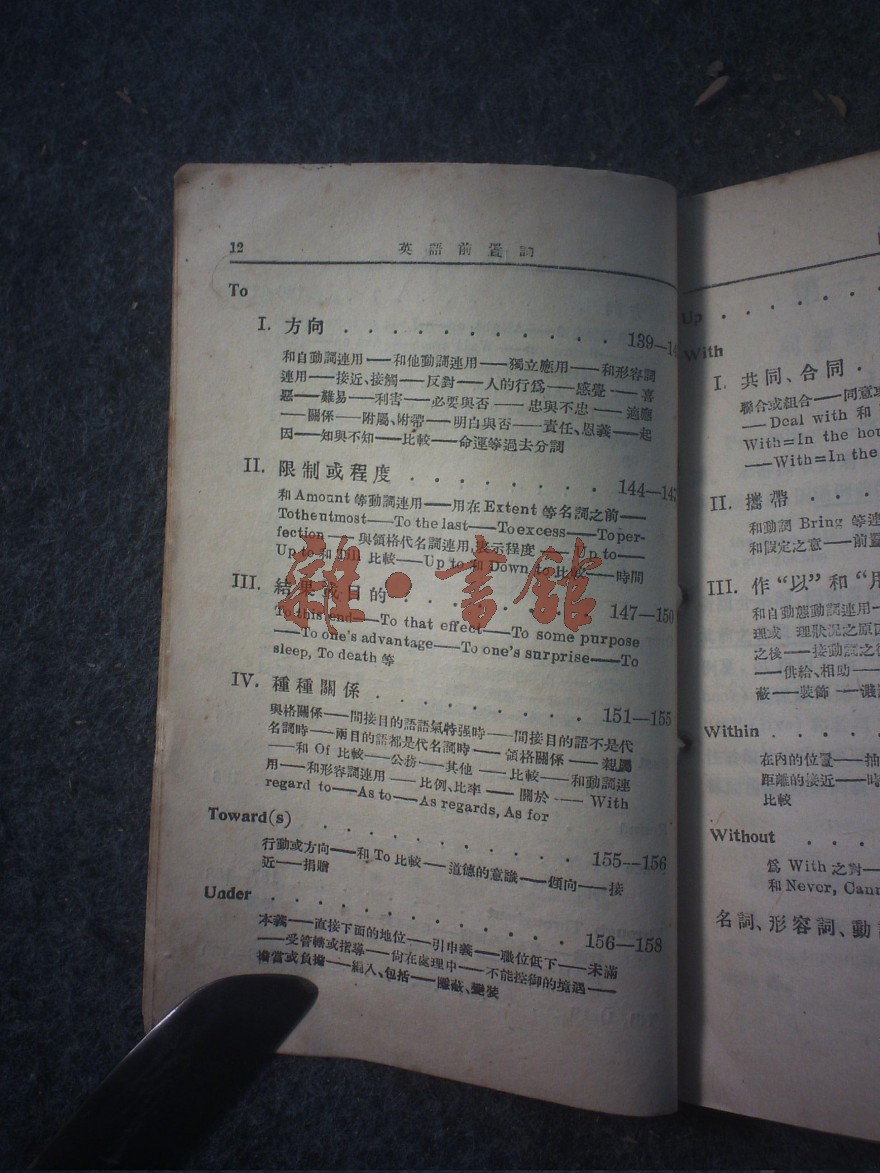 12 英語前置詞
To
I. 方向 . . . . . . . . . . . . 139—14
和自動詞連用——和他動詞連用——獨立應用——和形容詞
連用——接近、接觸——反對——人的行爲——感覺——喜
惡——難易——利害——必要與否——忠與不忠——適應
——關係——附屬、附帶——明白與否——責任、恩義——起
因——知與不知——比較——命運等過去分詞
II. 限制或程度 . . . . . . . . . 144—147
和 Amount 等動詞連用——用在 Extent 等名詞之前——
Totheutmost——To the last——To excess——To per-
fection——與領格代名詞連用,表示程度——Up to——
Up to 和 Till 比較——Up to 和 Down to 比較——時間
III. 結果或目的 . . . . . . . . 147—150
To this end——To that effect——To some purpose
——To one's advantage——To one's surprise——To
sleep, To death 等
IV. 種種關係 . . . . . . . . . 151—155
與格關係——間接目的語語氣特强時——間接目的語不是代
名詞時——兩目的語都是代名詞時——領格關係——親屬
——和 Of 比較——公務——其他——比較——和動詞連
用——和形容詞連用——比例、比率——關於——With
regard to——As to——As regards, As for
Toward(s) . . . . . . . . . . . 155—156
行動或方向——和 To 比較——道德的意識——傾向——接
近——捐贈
Under . . . . . . . . . . . . 156—158
本義——直接下面的地位——引申義——職位低下——未滿
——受管轄或指導——尙在處理中——不能控御的境遇——
擔當或負擔——編入、包括——隱蔽、變裝
雜·書館
Up . . . . . . .
With
I. 共同、合同 .
聯合或組合——同意
——Deal with 和
With=In the hou
——With=In the
II. 攜帶 . . . .
和動詞 Bring 等連
和假定之意——前置
III. 作“以”和“用
和自動態動詞連用—
理或 理狀況之原因
之後——接動詞之後
——供給、相助——
蔽——裝飾——濺
Within . . . . . .
在內的位置——抽
距離的接近——時
比較
Without . . . .
爲 With 之對—
和 Never, Cann
名詞、形容詞、動詞